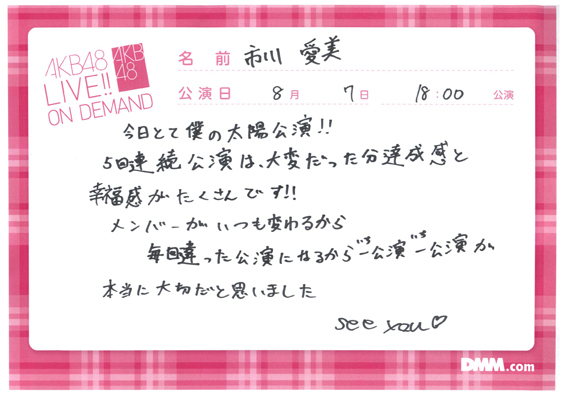 AKB48
LIVE!!
ON DEMAND
AKB
48
名前 市川 愛美
公演日 8月 7日 18:00 公演
今日とて僕の太陽公演!!
5回連続公演は、大変だった分達成感と
幸福感がたくさんです!!
メンバーがいつも変わるから
毎回違った公演になるから一公演一公演が
いち いち
本当に大切だと思いました
see you♡
DMM.com